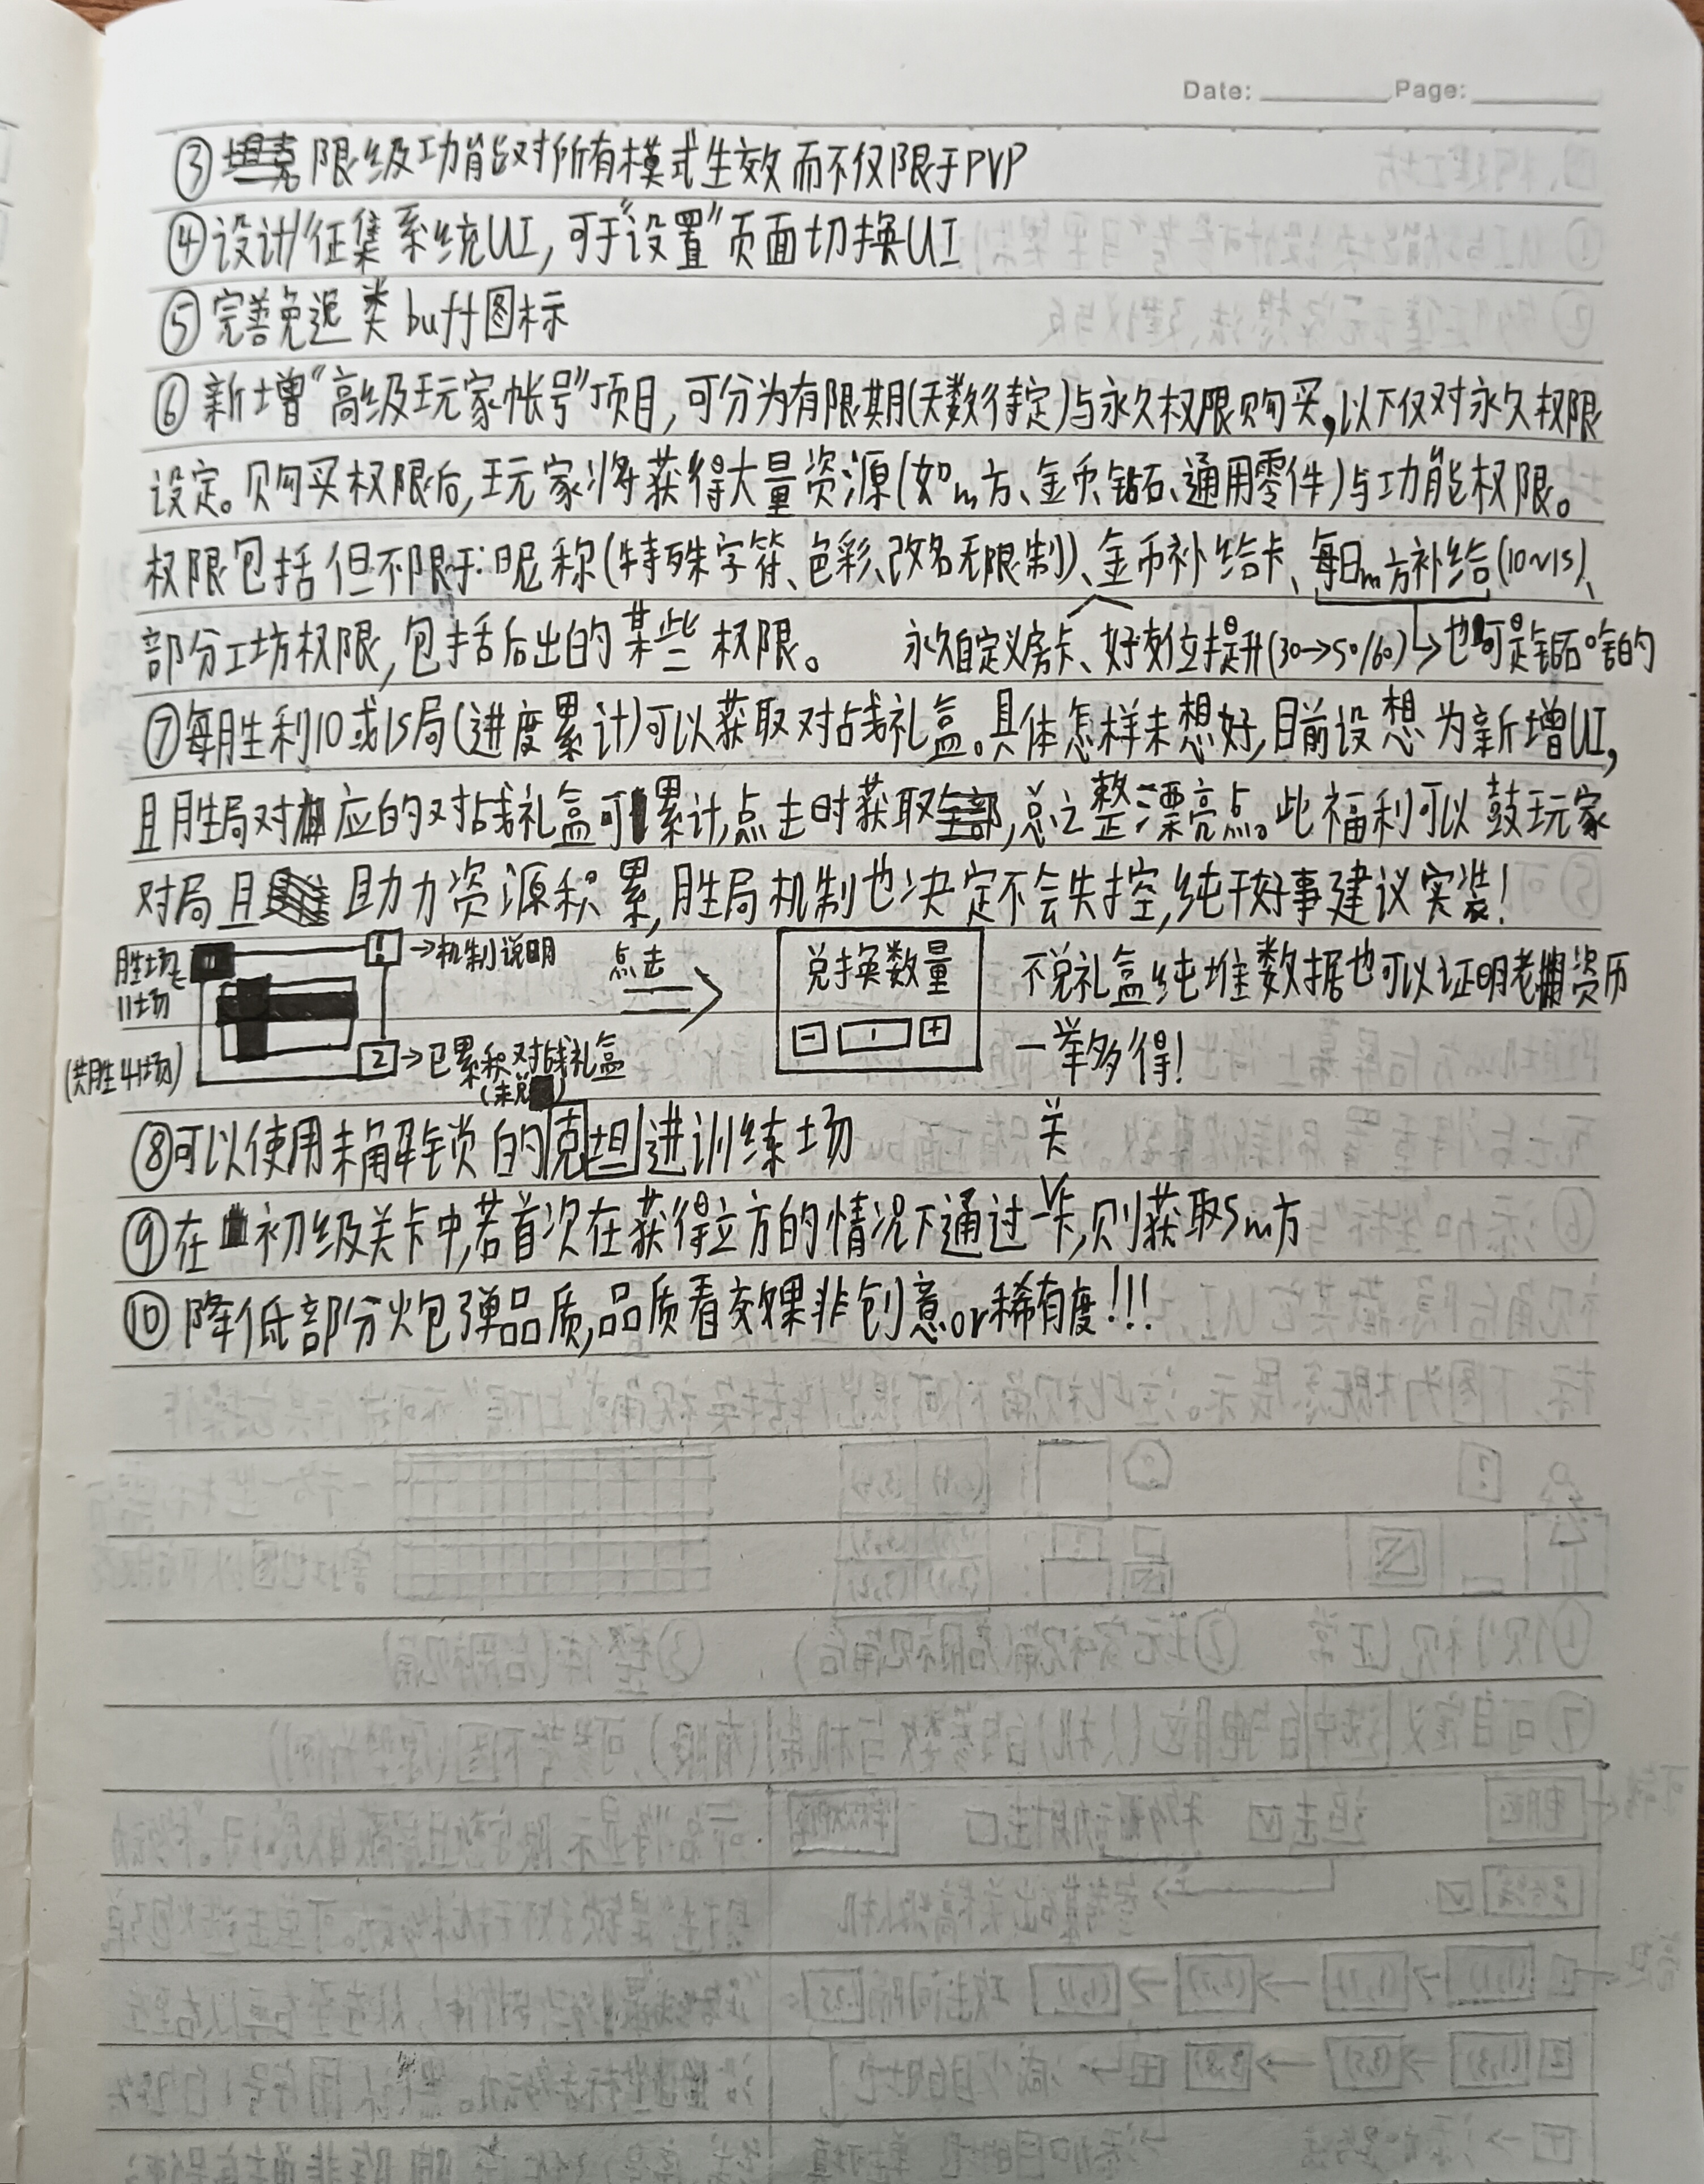 Date: Page:
③限级功能对所有模式生效而不仅限于PVP
④设计/征集系统UI,可于“设置”页面切换UI
⑤完善免疫类buff图标
⑥新增“高级玩家帐号”项目,可分为有限期(天数待定)与永久权限购买,以下仅对永久权限
设定。购买权限后,玩家将获得大量资源(如m方、金币、钻石、通用零件)与功能权限。
权限包括但不限于:昵称(特殊字符、色彩、改名无限制)、金币补给卡、每日m方补给(10~15)、
部分工坊权限,包括后出的某些权限。 永久自定义房卡、好友位提升(30→50/60) →也可是钻石啥的
⑦每胜利10或15局(进度累计)可以获取对战礼盒。具体怎样未想好,目前设想为新增UI,
且胜局对应的对战礼盒可累计,点击时获取,总之整漂亮点。此福利可以鼓玩家
对局且助力资源积累,胜局机制也决定不会失控,纯干好事建议实装!
胜场:
11场
(共胜41场)
! →机制说明
2 →已累积对战礼盒
点击
兑换数量
- 1 +
不说礼盒纯堆数据也可以证明老资历
一举多得!
⑧可以使用未解锁的克坦进训练场
⑨在初级关卡中,若首次在获得立方的情况下通过一关卡,则获取5m方
⑩降低部分炮弹品质,品质看效果非创意or稀有度!!!